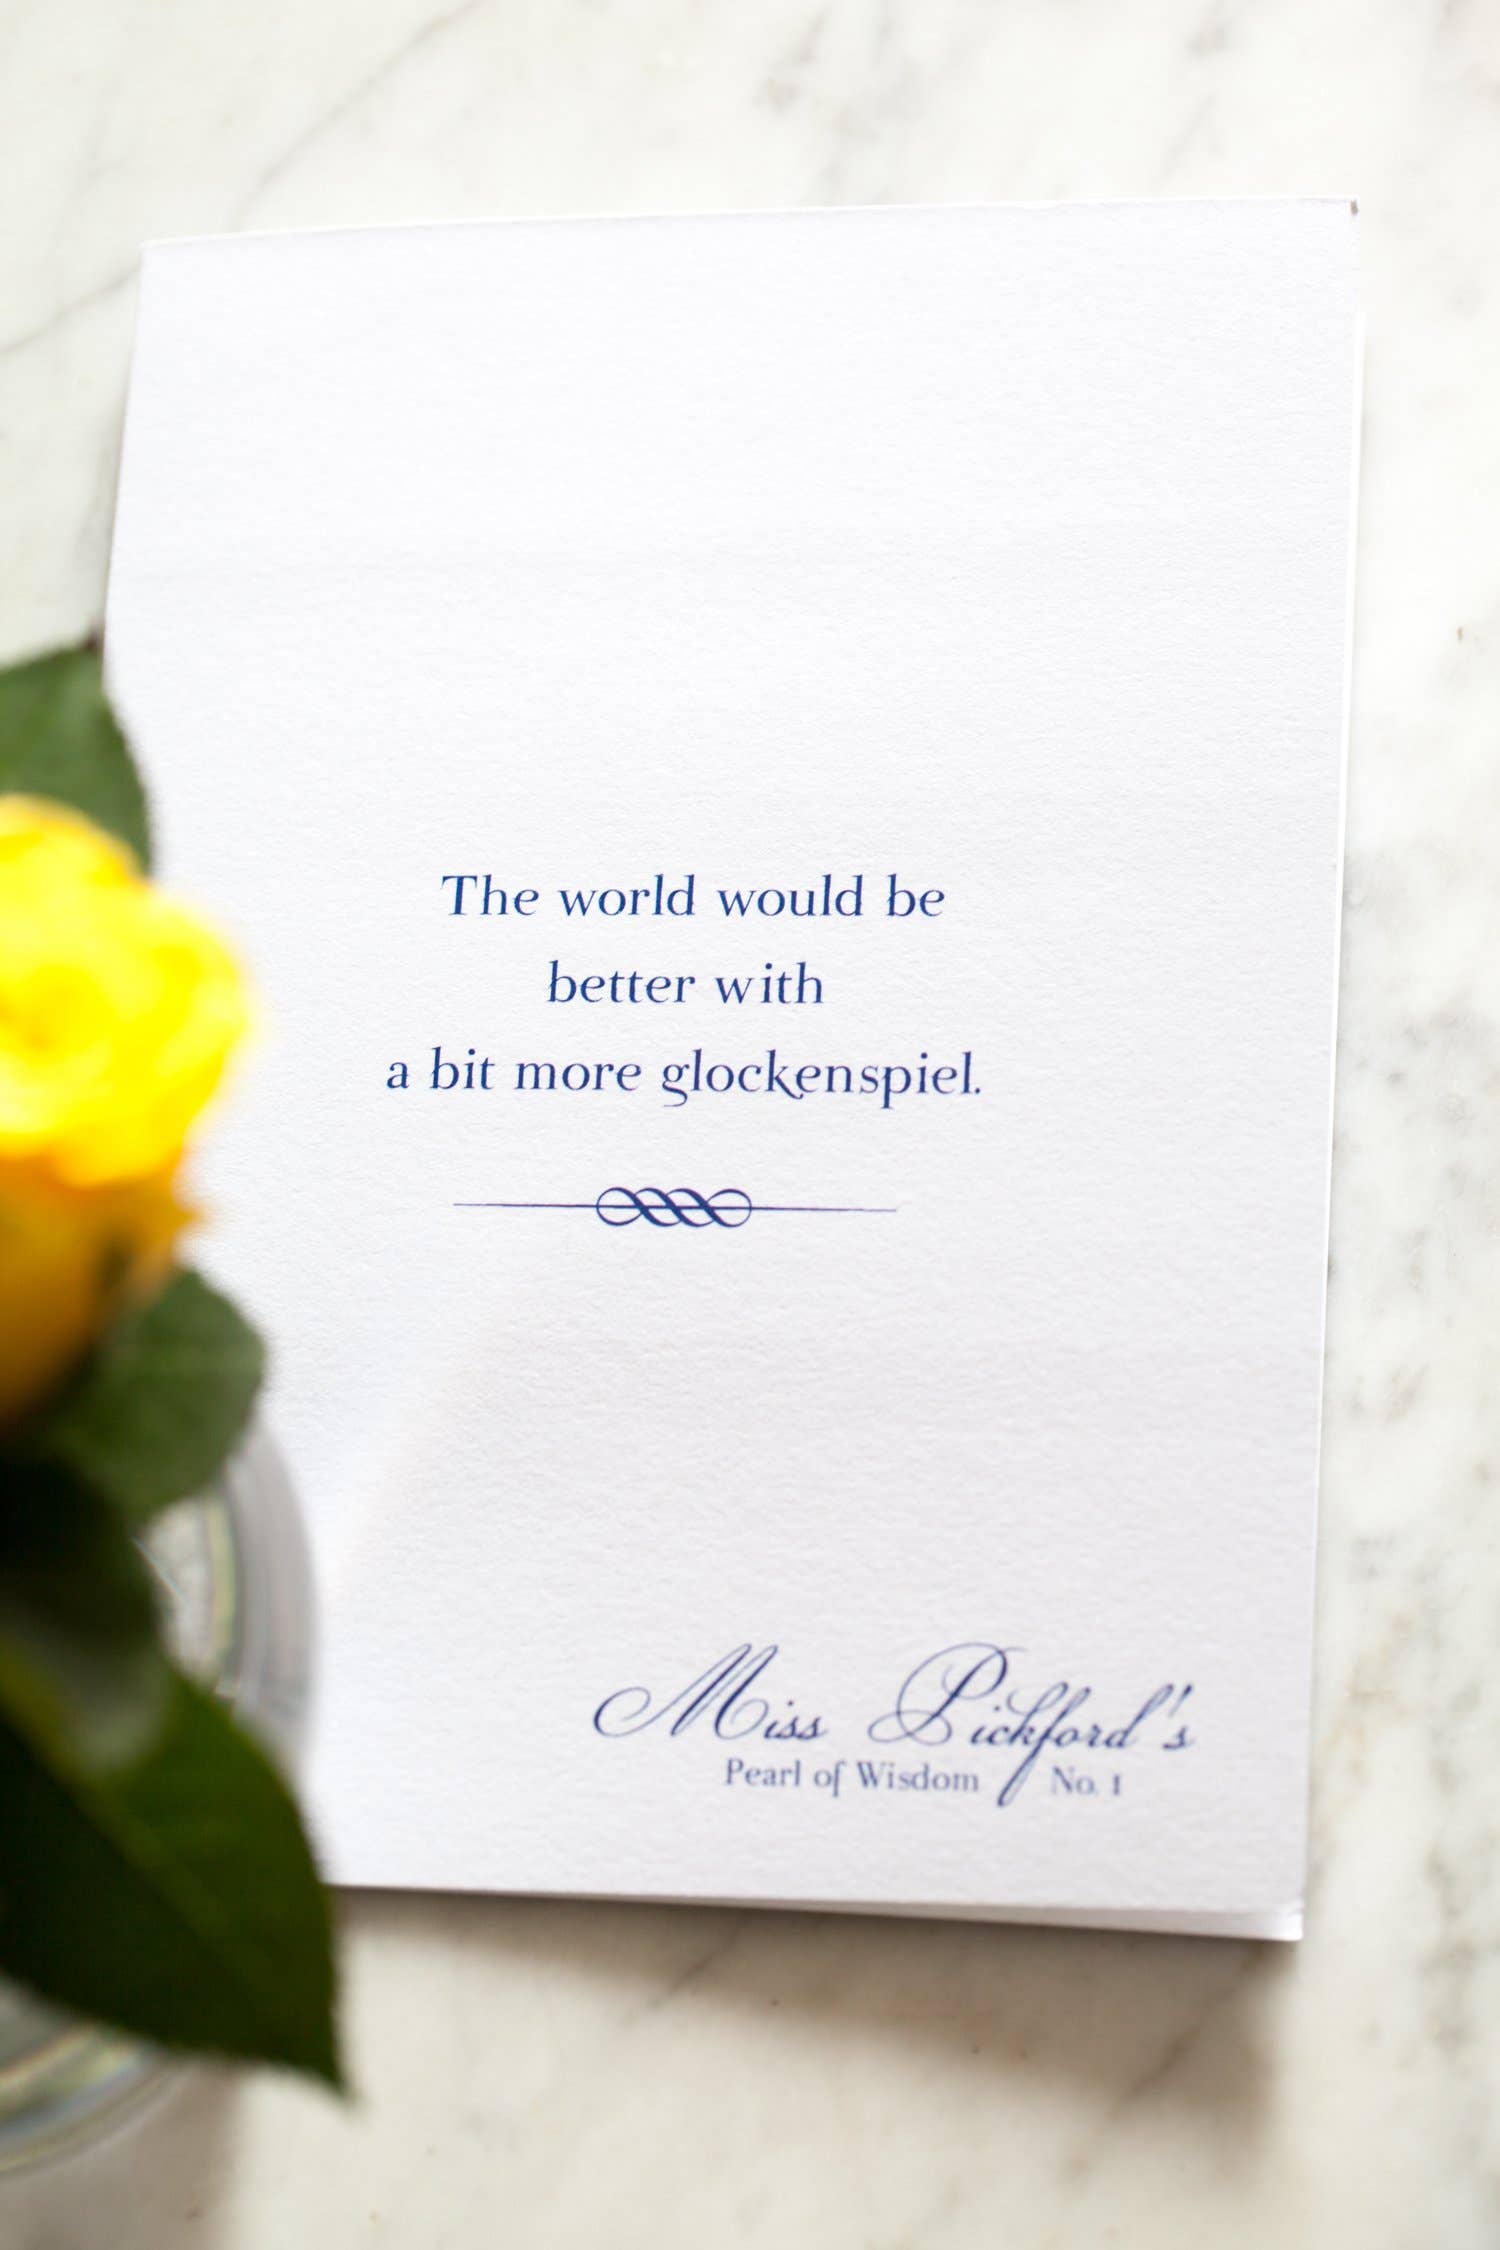 The world would be
better with
a bit more glockenspiel.
Miss Pickford's
Pearl of Wisdom No. 1